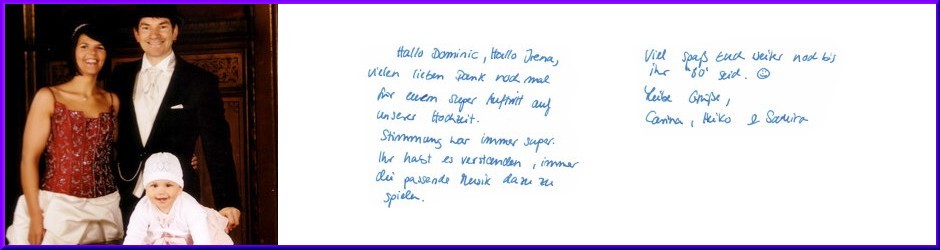 Hallo Dominic, Hallo Irena,
vielen lieben Dank noch mal
für euren super Auftritt auf
unserer Hochzeit.
Stimmung war immer super.
Ihr habt es verstanden, immer
die passende Musik dazu zu
spielen.
Viel spaß Euch weiter noch bis
ihr "80" seid. ☺
Liebe Grüße,
Carina, Heiko & Samira